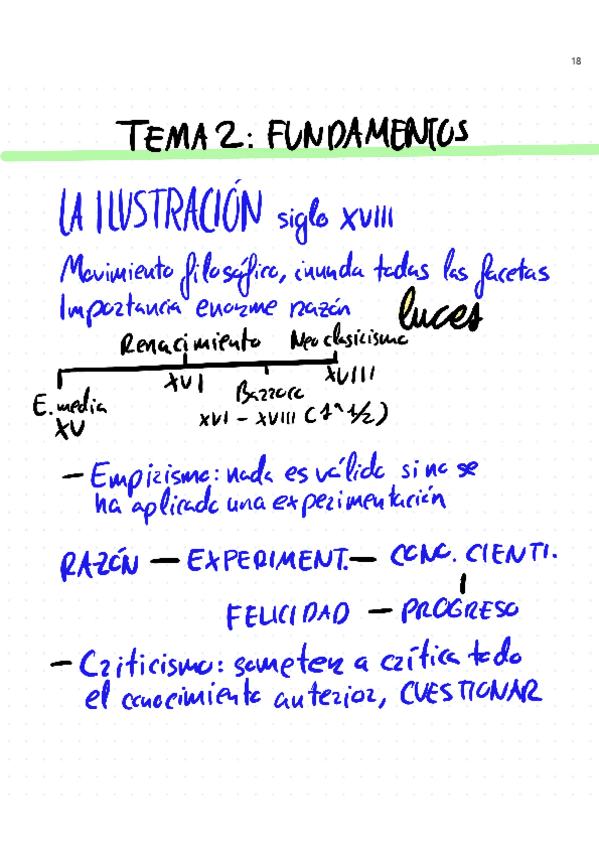 18
TEMA 2: FUNDAMENTOS
LA ILUSTRACIÓN siglo XVIII
Movimiento filosófico, inunda todas las facetas
Importancia enorme razón luces
Renacimiento Neoclasicismo
XVI XVIII
E. media Barroco
XV XVI - XVIII (1ª 1/2)
- Empirismo: nada es válido si no se
ha aplicado una experimentación
RAZÓN - EXPERIMENT. - CONO. CIENTI.
FELICIDAD - PROGRESO
- Criticismo: someter a crítica todo
el conocimiento anterior, CUESTIONAR